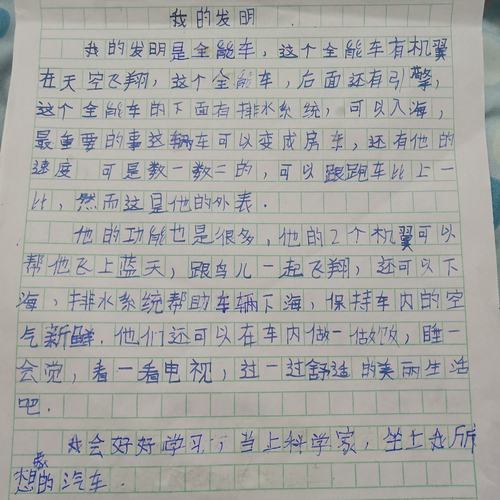 我的发明
我的发明是全能车，这个全能车有机翼
在天空飞翔，这个全能车，后面还有引擎，
这个全能车的下面有排水系统，可以入海，
最重要的事这辆车可以变成房车，还有他的
速度 可是数一数二的，可以跟跑车比上一
比，然而这是他的外表.
他的功能也是很多，他的2个机翼可以
帮他飞上蓝天，跟鸟儿一起飞翔，还可以下
海，排水系统帮助车辆下海，保持车内的空
气新鲜.他们还可以在车内做一做饭，睡一
会觉，看一看电视，过一过舒适的美丽生活
吧.
我会好好学习，当上科学家，坐上我所
想象的汽车.